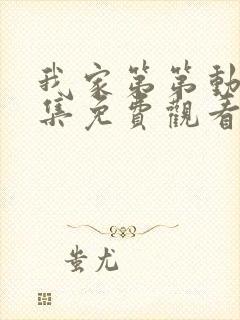 我家第第動
集免費觀看
蚩尤